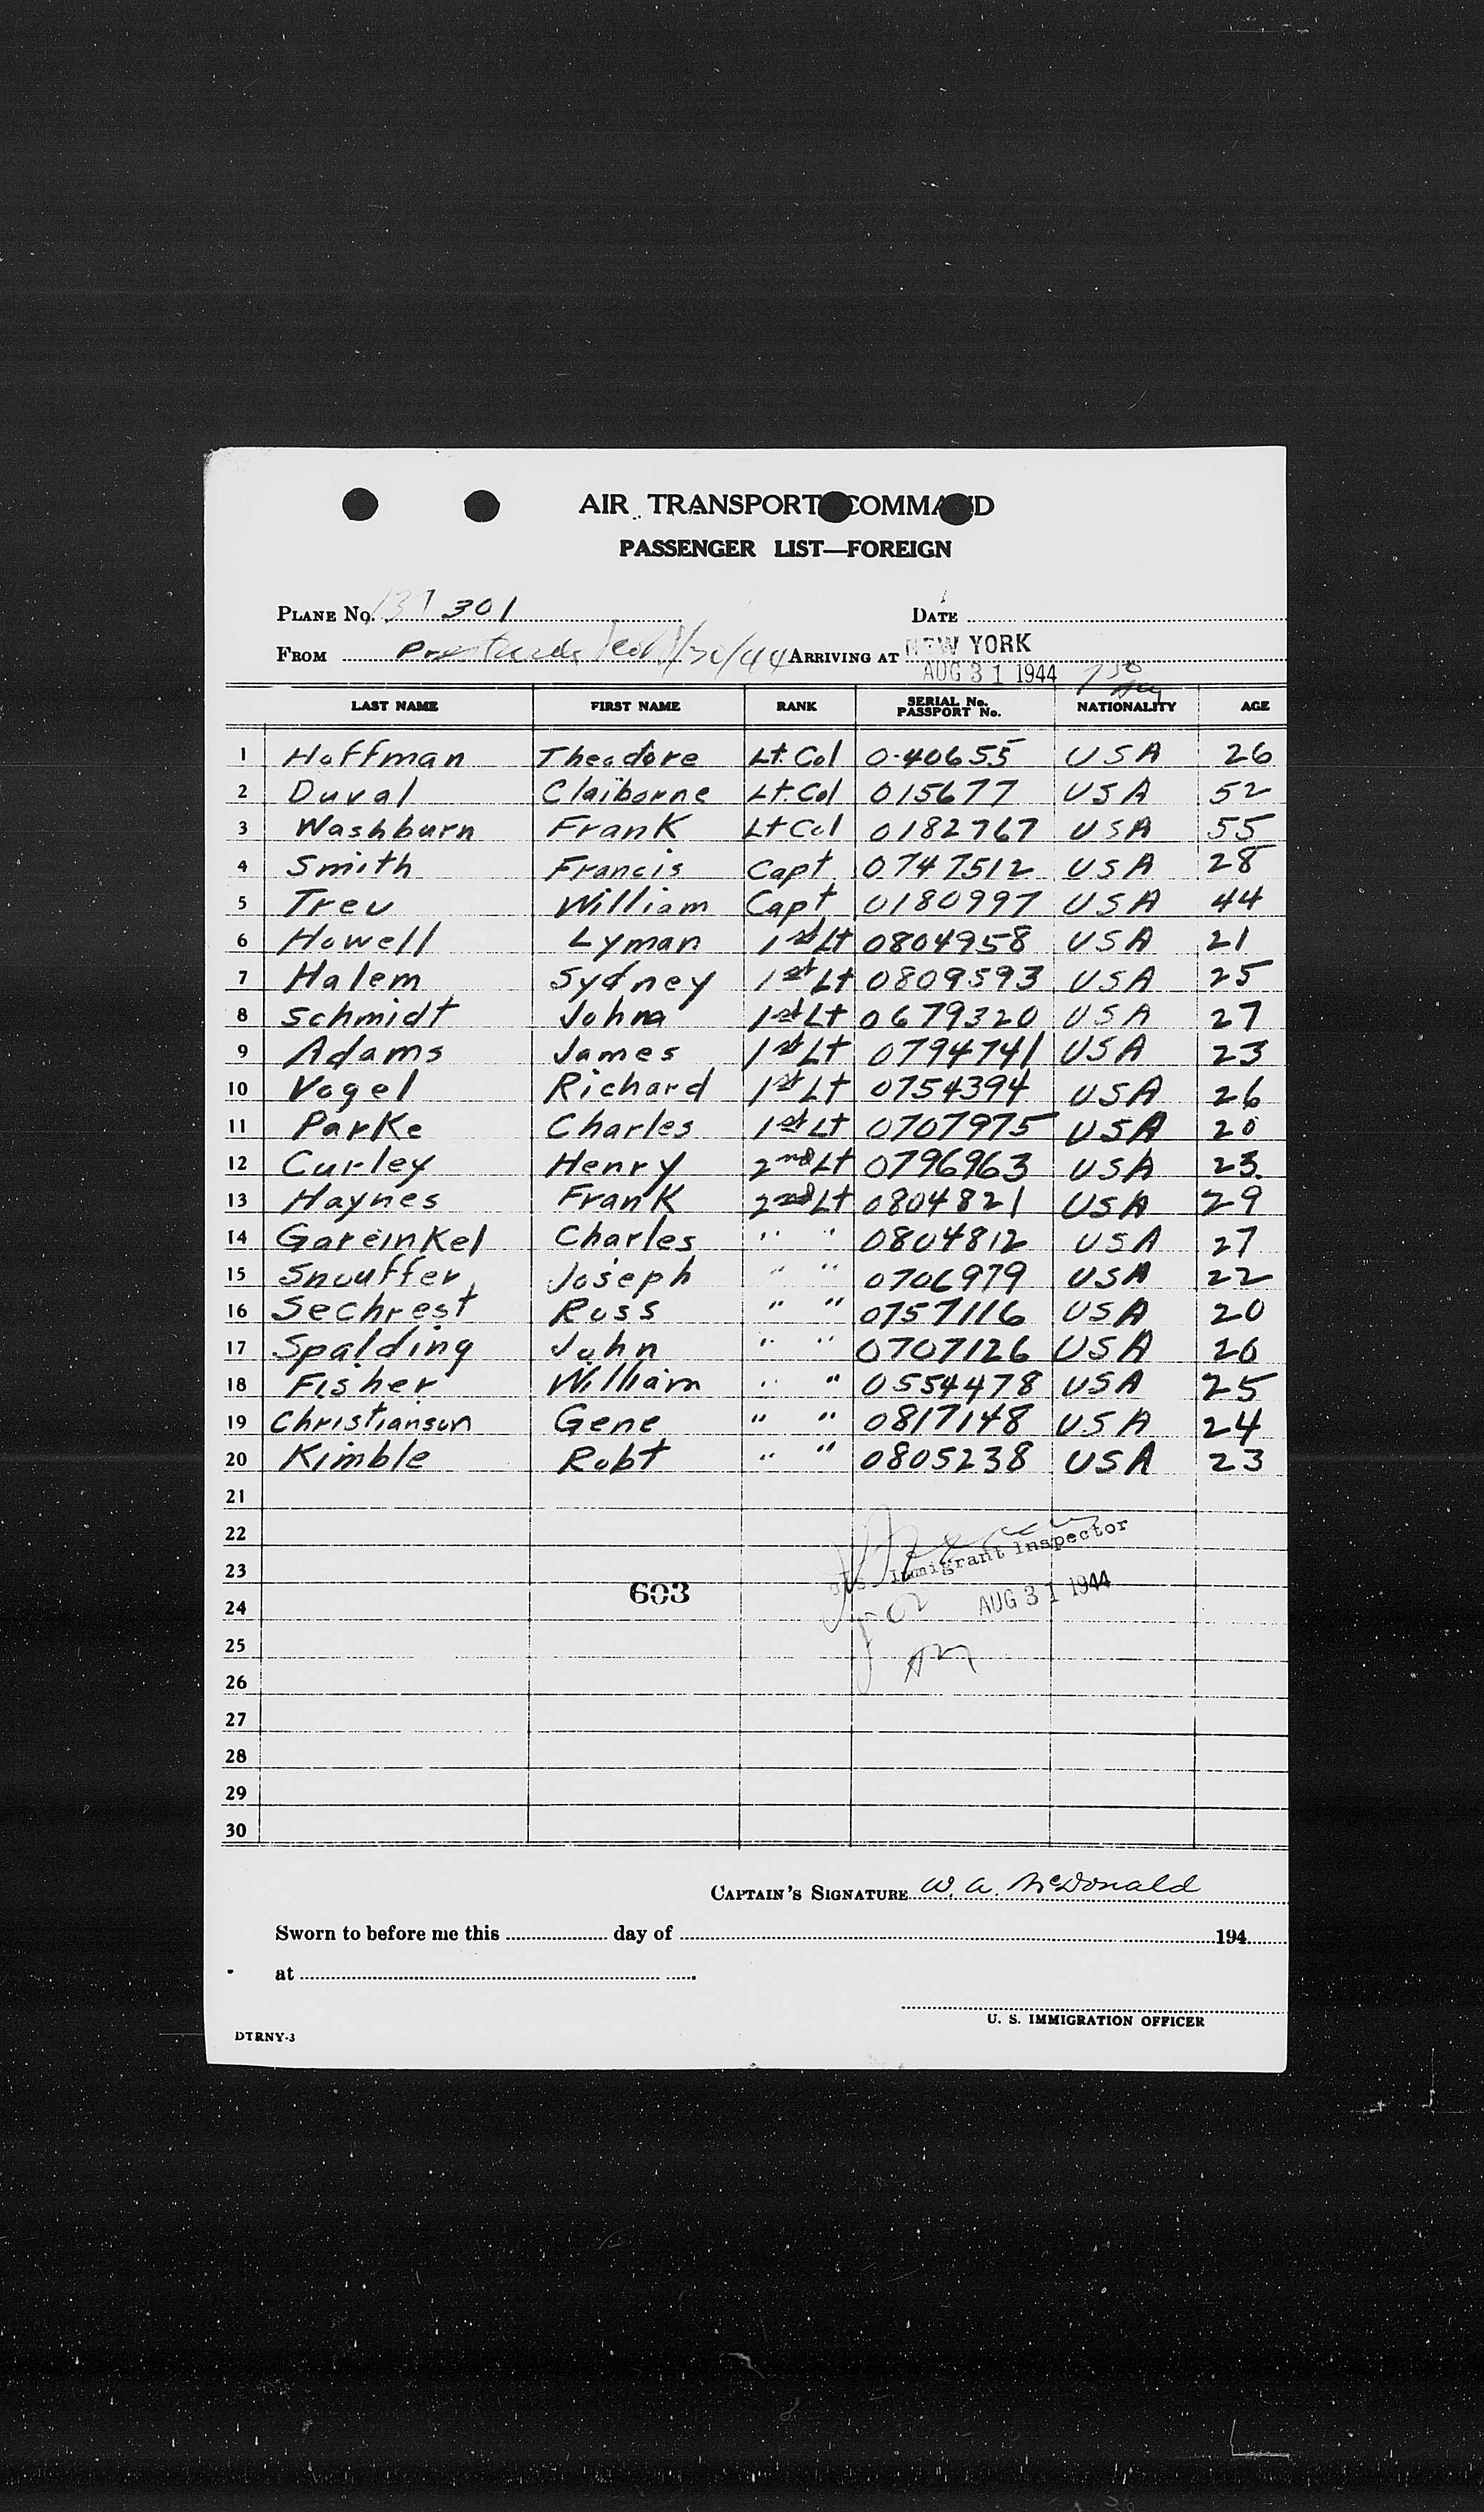 AIR TRANSPORT COMMAND
PASSENGER LIST—FOREIGN
PLANE No. 137 301 DATE
FROM 8/30/44 ARRIVING AT NEW YORK
AUG 31 1944 730
LAST NAME FIRST NAME RANK SERIAL No. PASSPORT No. NATIONALITY AGE
1 Hoffman Theodore Lt. Col 0-40655 USA 26
2 Duval Claiborne Lt. Col 015677 USA 52
3 Washburn Frank Lt Col 0182767 USA 55
4 Smith Francis Capt 0747512 USA 28
5 Treu William Capt 0180997 USA 44
6 Howell Lyman 1st Lt 0804958 USA 21
7 Halem Sydney 1st Lt 0809593 USA 25
8 Schmidt John 1st Lt 0679320 USA 27
9 Adams James 1st Lt 0794741 USA 23
10 Vogel Richard 1st Lt 0754394 USA 26
11 Parke Charles 1st Lt 0707975 USA 20
12 Curley Henry 2nd Lt 0796963 USA 23
13 Haynes Frank 2nd Lt 0804821 USA 29
14 Gareinkel Charles " " 0804812 USA 27
15 Snouffer Joseph " " 0706979 USA 22
16 Sechrest Ross " " 0757116 USA 20
17 Spalding John " " 0707126 USA 20
18 Fisher William " " 0554478 USA 25
19 Christianson Gene " " 0817148 USA 24
20 Kimble Robt " " 0805238 USA 23
21
22
Immigrant Inspector
23
603
AUG 31 1944
24
25
26
27
28
29
30
CAPTAIN'S SIGNATURE W. A. McDonald
Sworn to before me this day of 194
at
U. S. IMMIGRATION OFFICER
DTRNY-3